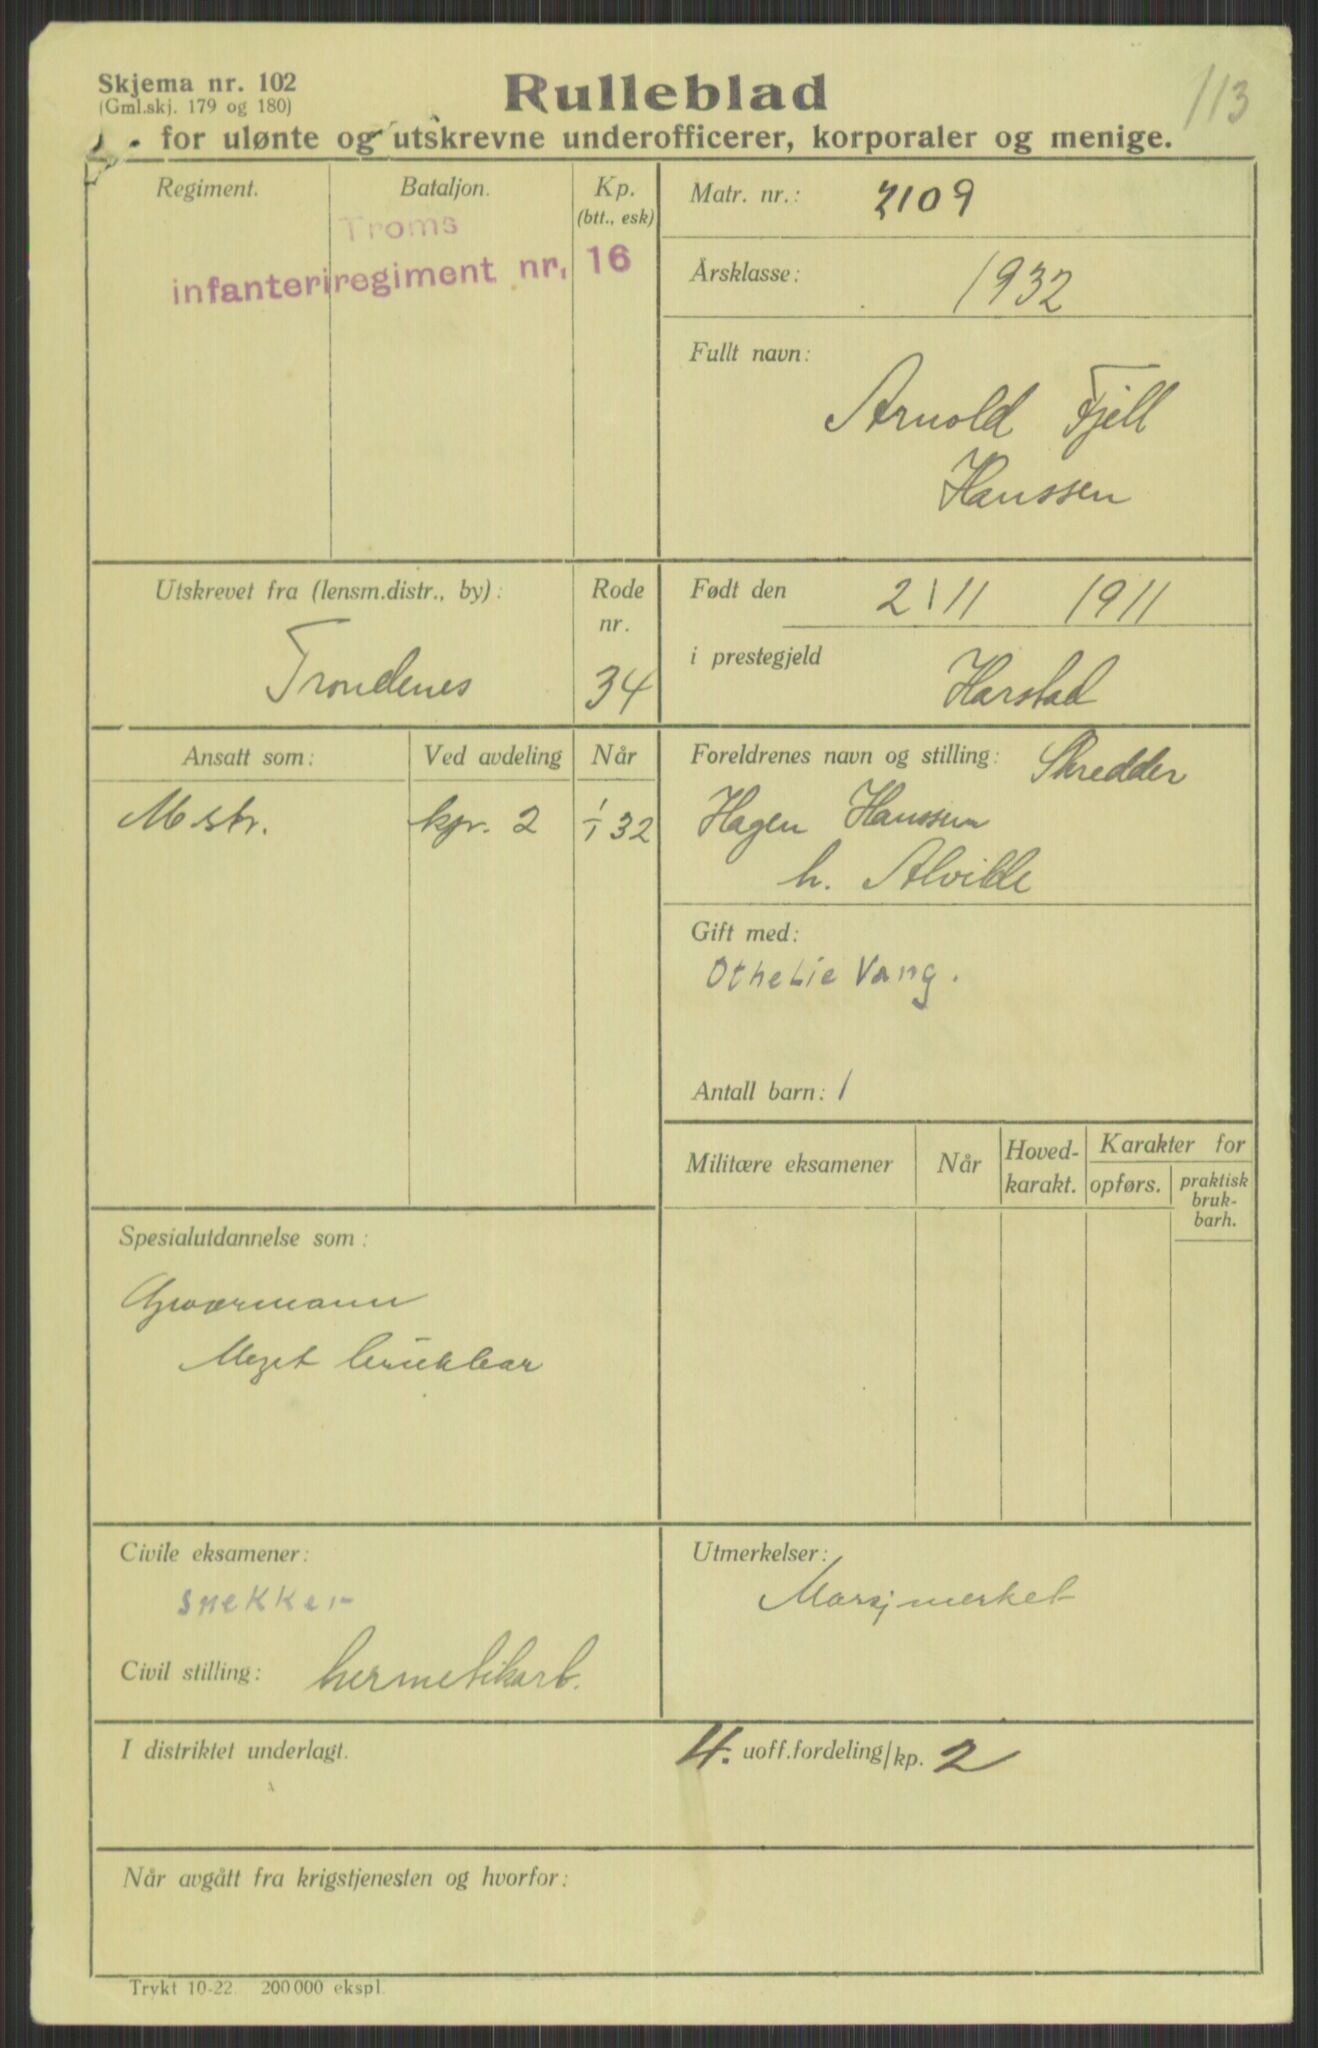 113
Skjema nr. 102
(Gml.skj. 179 og 180)
Rulleblad
for ulønte og utskrevne underofficerer, korporaler og menige.
Regiment.
Bataljon.
Kp.
(btt., esk)
Troms
infanteriregiment nr. 16
Matr. nr.: 2109
Årsklasse: 1932
Fullt navn:
Arnold Fjell
Hanssen
Utskrevet fra (lensm.distr., by):
Trondenes
Rode
nr.
34
Født den 2/11 1911
i prestegjeld Harstad
Ansatt som:
Ved avdeling
Når
M str.
kpr. 2
1/1 32
Foreldrenes navn og stilling: Skredder
Hagen Hanssen
h. Alvilde
Gift med:
Othelie Vang.
Antall barn: 1
Militære eksamener
Når
Hoved-
karakt.
Karakter for
opførs.
praktisk
bruk-
barh.
Spesialutdannelse som:
Geværmann
Meget brukbar
Civile eksamener:
snekker
Civil stilling: hermetikarb.
Utmerkelser:
Marsjmerket
I distriktet underlagt.
4. uoff.fordeling/kp. 2
Når avgått fra krigstjenesten og hvorfor:
Trykt 10-22. 200 000 ekspl.